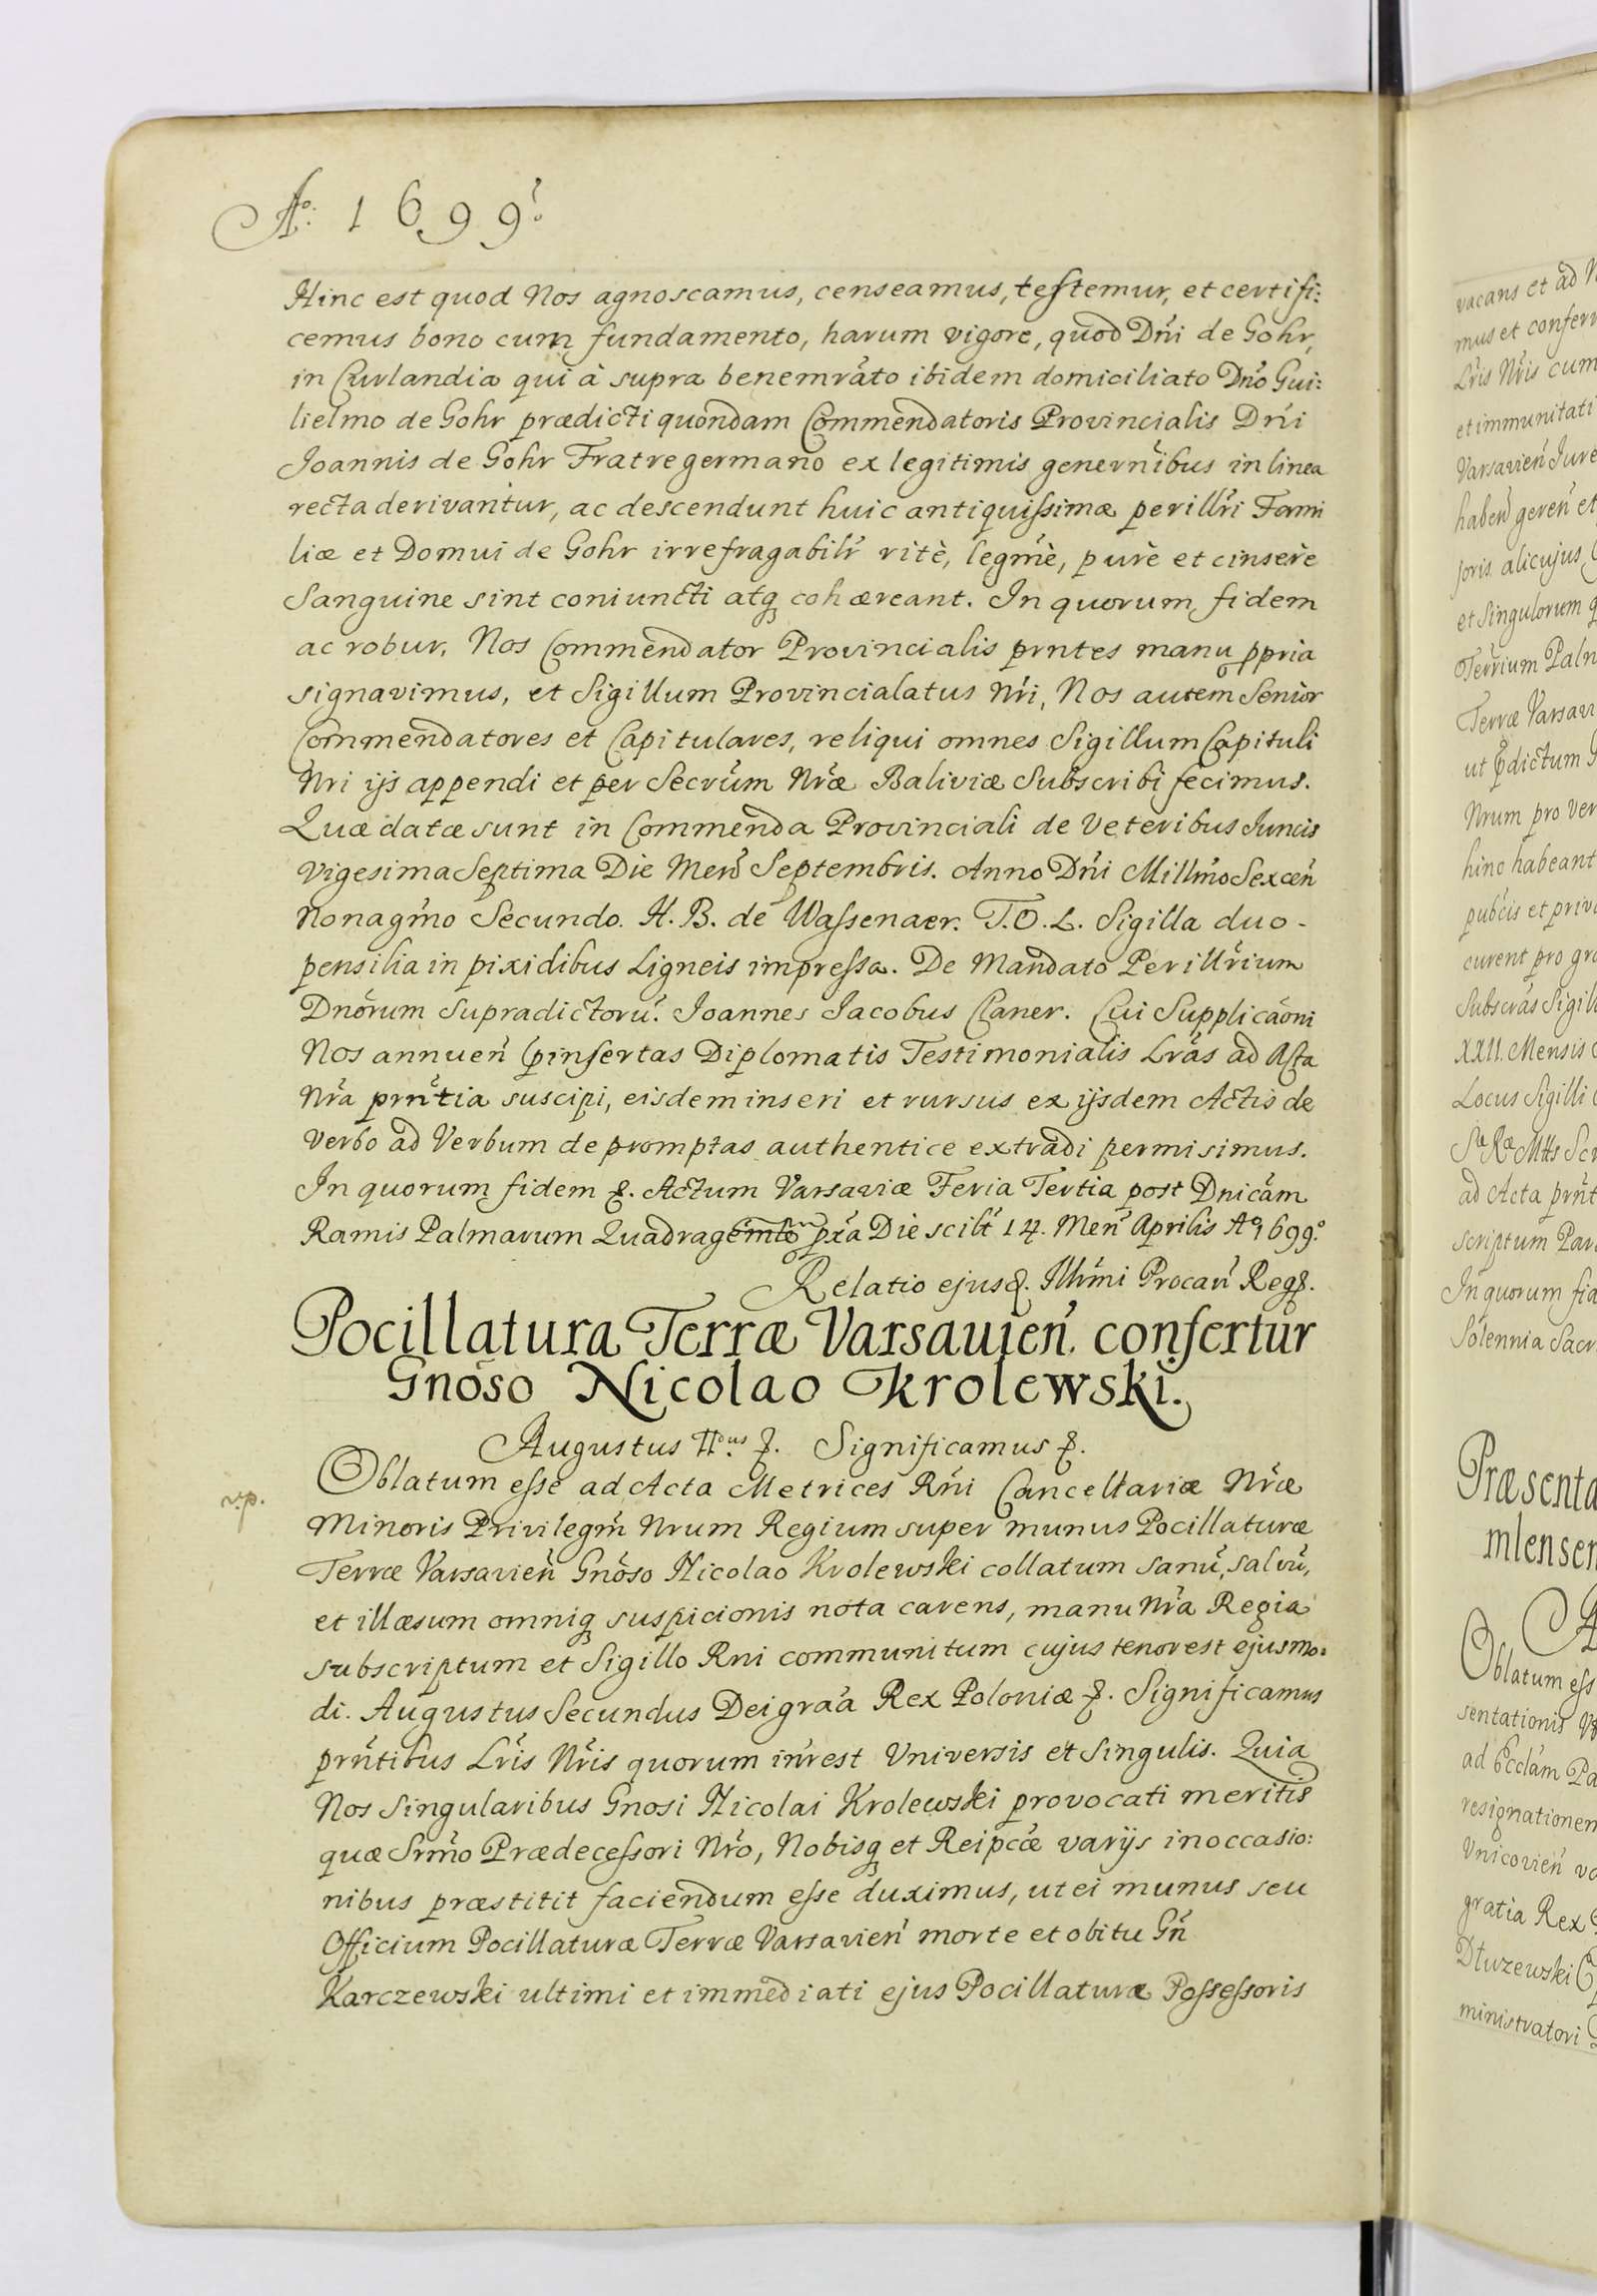 Aº 1699º
Hinc est quod Nos agnoscamus, censeamus, testemur, et certifi:
cemus bono cum fundamento, harum vigore, quod Dñi de Gohr,
in Curlandia qui à supra benemrãto ibidem domiciliato Dño Gui:
lielmo de Gohr prædicti quondam Commendatoris Provincialis Dñi
Joannis de Gohr Fratre germano ex legitimis genernibus in linea
recta derivantur, ac descendunt huic antiquissimæ perillri Fami
liæ et Domui de Gohr irrefragabilr ritè, legmè, purè et cinserè
Sanguine sint coniuncti atq cohæreant. In quorum fidem
ac robur, Nos Commendator Provincialis prntes manu ppria
signavimus, et Sigillum Provincialatus Nri, Nos autem Senior
Commendatores et Capitulares, reliqui omnes Sigillum Capituli
Nri ijs appendi et per Secrũm Nræ Baliviæ Subscribi fecimus.
Quæ datæ sunt in Commenda Provinciali de Veteribus Juncis
Vigesima Septima Die Men Septembris. Anno Dñi Millmo Sexceñ
Nonagmo Secundo. H. B. de Wassenaer. T. O. L. Sigilla duo -
pensilia in pixidibus Ligneis impressa. De Mandato Perillrium
Dnõrum supradictorũ. Joannes Jacobus Claner. Cui Supplicaõni
Nos annueñ pinsertas Diplomatis Testimonialis Lrãs ad Acta
Nrã prñtia suscipi, eisdem inseri et rursus ex ijsdem Actis de
Verbo ad Verbum depromptas authentice extradi permisimus.
In quorum fidem &. Actum Varsaviæ Feria Tertia post Dnicãm
Ramis Palmarum pxã Die scilt 14. Meñ Aprilis Aº 1699º
Relatio ejusd. Illmi Procañ Reg.
Pocillatura Terræ Varsavieñ. confertur
Gnõso Nicolao Krolewski.
Augustus IIdus &. Significamus &.
v.p.
Oblatum esse ad Acta Metrices Rñi Cancellariæ Nræ
Minoris Privilegm̃ Nrum Regium super munus Pocillaturæ
Terræ Varsavieñ Gnõso Nicolao Krolewski collatum sanũ, salvũ,
et illæsum omniq suspicionis nota carens, manu Nrã Regia
subscriptum et Sigillo Rni communitum cujus tenor est ejusmo:
di. Augustus Secundus Dei graã Rex Poloniæ &. Significamus
prñtibus Lris Nris quorum inrest Universis et Singulis. Quia
Nos singularibus Gnosi Nicolai Krolewski provocati meritis
quæ Srmo Prædecessori Nrõ, Nobisq et Reipcæ varijs in occasio:
nibus præstitit faciendum esse duximus, ut ei munus seu
Officium Pocillaturæ Terræ Varsavieñ morte et obitu Gñ
Karczewski ultimi et immediati ejus Pocillaturæ Possessoris
vacans et ad
mus et conferr
Lris Nris cum
et immunitati
Varsavieñ Jure
habeñ gereñ et
soris alicujus
et Singulorum
Terrium Paln
Terræ Varsavi
ut pdictum
Nrum pro ver
hinc habeant
pubcis et priva
curent pro gra
Subscras Sigil
XXII. Mensis
Locus Sigilli
Sæ Ræ Mttis Scr
ad Acta prñt
scriptum Par
In quorum fid
Solennia Sacr
Præsenta
mlensem
Oblatum ess
sentationis
ad Ecclam Pa
resignationem
Unicovieñ va
gratia Rex
Dłuzewski
ministratori